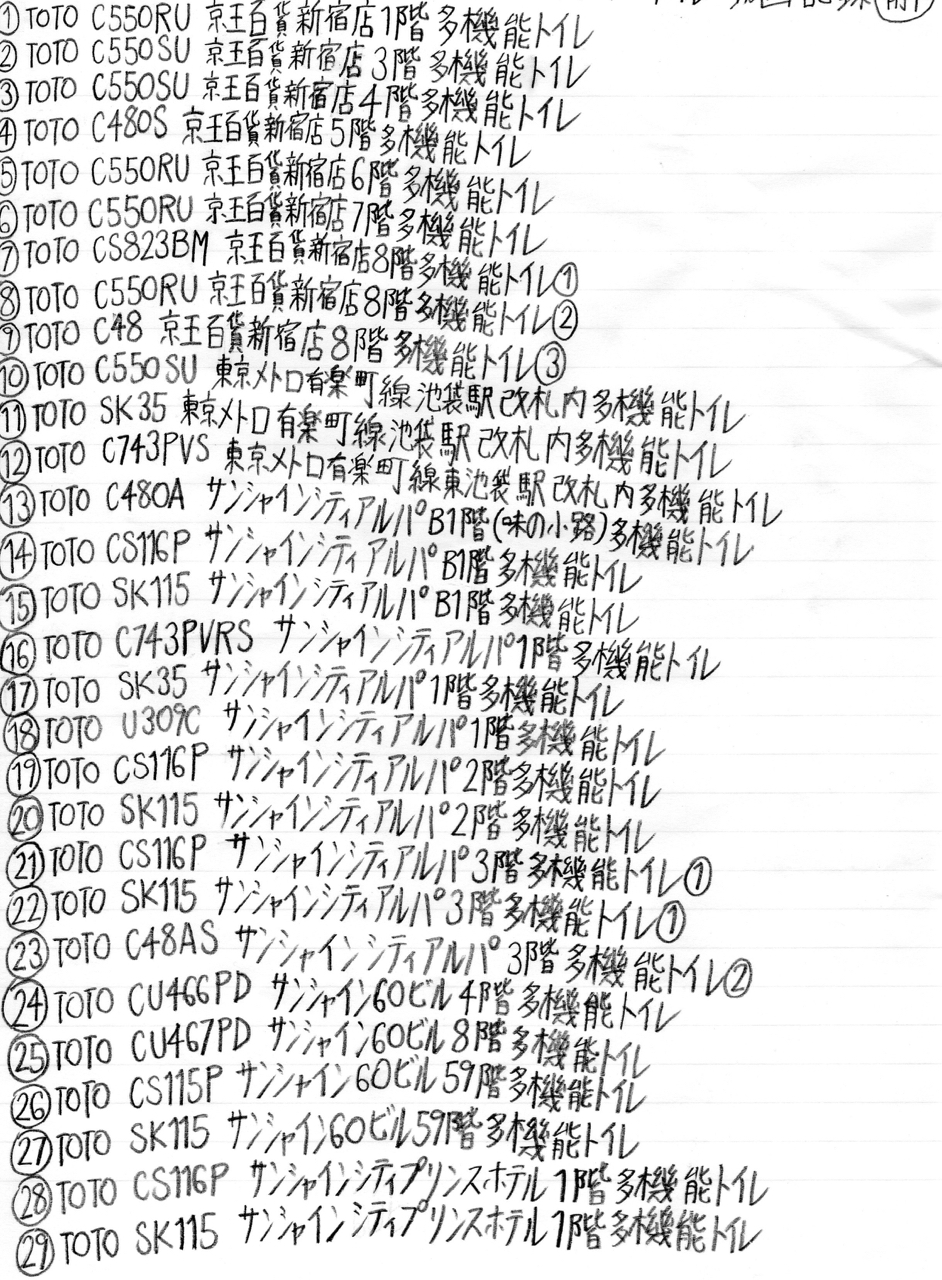 ① TOTO C550RU 京王百貨新宿店1階多機能トイレ
② TOTO C550SU 京王百貨新宿店3階多機能トイレ
③ TOTO C550SU 京王百貨新宿店4階多機能トイレ
④ TOTO C480S 京王百貨新宿店5階多機能トイレ
⑤ TOTO C550RU 京王百貨新宿店6階多機能トイレ
⑥ TOTO C550RU 京王百貨新宿店7階多機能トイレ
⑦ TOTO CS823BM 京王百貨新宿店8階多機能トイレ①
⑧ TOTO C550RU 京王百貨新宿店8階多機能トイレ②
⑨ TOTO C48 京王百貨新宿店8階多機能トイレ③
⑩ TOTO C550SU 東京メトロ有楽町線池袋駅改札内多機能トイレ
⑪ TOTO SK35 東京メトロ有楽町線池袋駅改札内多機能トイレ
⑫ TOTO C743PVS 東京メトロ有楽町線東池袋駅改札内多機能トイレ
⑬ TOTO C480A サンシャインシティアルパB1階(味の小路)多機能トイレ
⑭ TOTO CS116P サンシャインシティアルパB1階多機能トイレ
⑮ TOTO SK115 サンシャインシティアルパB1階多機能トイレ
⑯ TOTO C743PVRS サンシャインシティアルパ1階多機能トイレ
⑰ TOTO SK35 サンシャインシティアルパ1階多機能トイレ
⑱ TOTO U309C サンシャインシティアルパ1階多機能トイレ
⑲ TOTO CS116P サンシャインシティアルパ2階多機能トイレ
⑳ TOTO SK115 サンシャインシティアルパ2階多機能トイレ
㉑ TOTO CS116P サンシャインシティアルパ3階多機能トイレ①
㉒ TOTO SK115 サンシャインシティアルパ3階多機能トイレ①
㉓ TOTO C48AS サンシャインシティアルパ3階多機能トイレ②
㉔ TOTO CU466PD サンシャイン60ビル4階多機能トイレ
㉕ TOTO CU467PD サンシャイン60ビル8階多機能トイレ
㉖ TOTO CS115P サンシャイン60ビル59階多機能トイレ
㉗ TOTO SK115 サンシャイン60ビル59階多機能トイレ
㉘ TOTO CS116P サンシャインシティプリンスホテル1階多機能トイレ
㉙ TOTO SK115 サンシャインシティプリンスホテル1階多機能トイレ